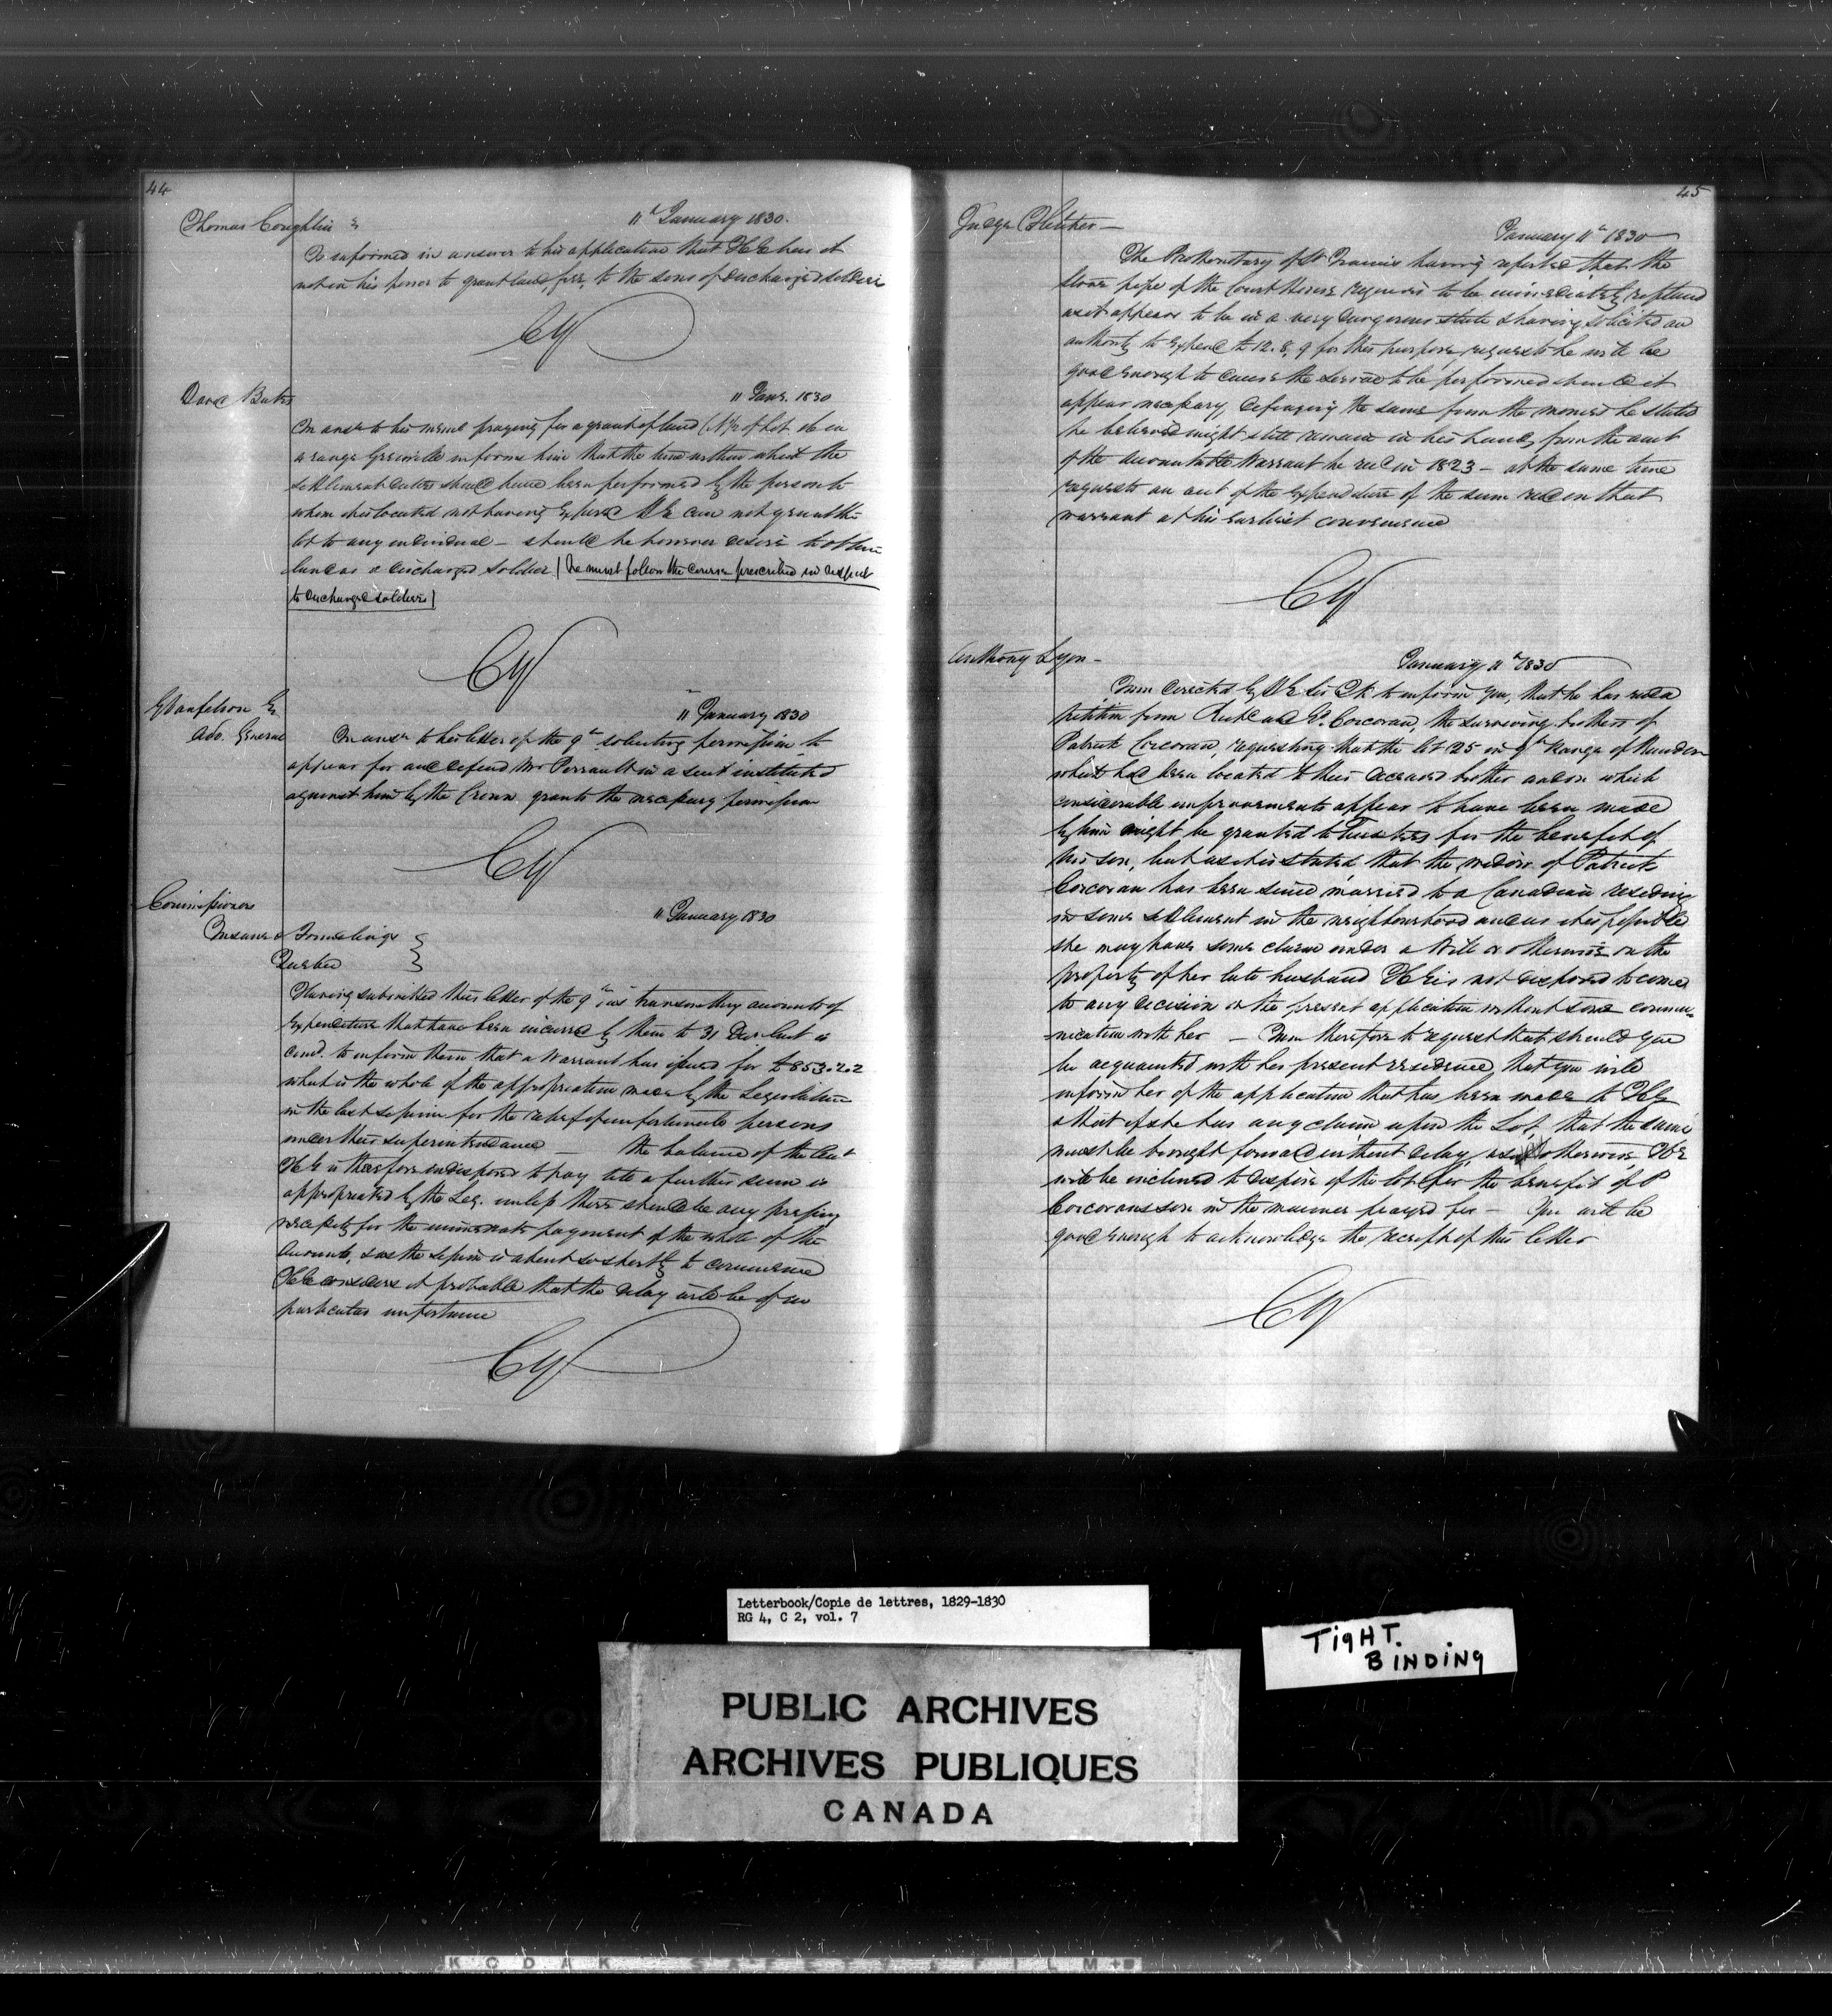 44
Thomas Coughlin
11th January 1830.
Is informed in answer to his application that HE has it
not in his power to grant land free to the sons of discharged soldiers
CY
David Bates
11 Jany. 1830
In ansr to his meml praying for a grant of land (N ½ of Lot in
range Grenville informs him that the time within which the
settlement duties should have been performed by the person to
whom it is located not having expired HE can not grant the
lot to any individual – should he however desire to obtain
land as a discharged soldier | he must follow the course prescribed in respect
to discharged soldiers |
CY
G Vanfelson Es
Adv. General
11 January 1830
In ansr to his letter of the 9th soliciting permission to
appear for and defend Mr Perrault in a suit instituted
against him by the Crown grants the necessary permission
CY
Commissioners
Insane & Foundlings
Quebec
11 January 1830
Having submitted their letter of the 9th ins transmitting accounts of
expenditure that have been incurred by them to 31 Decr last is
comd. to inform them that a Warrant has issued for £853.2.2
which is the whole of the appropriation made by the Legislature
in the last session for the relief of unfortunate persons
under their superintendance — the balance of the
HE is therefore indisposed to pay till a further sum is
appropriated by the Leg. unless there should be any pressing
necessity for the immediate payment of the whole of the
Accounts, & as the session is about so shortly to commence
HE considers it probable that the delay will be of no
particular importance
CY
45
Judge Fletcher —
January 11th 1830
The Prothonotary of St Francis having reported that the
stove pipe of the Court House requires to be immediately replaced
as it appears to be in a very dangerous state & having solicited an
authority to expend £12.8.9 for this purpose, requests he will be
good enough to cause the service to be performed should it
appear necessary, defraying the same from the monies he stated
he believed might still remain in his hands from the amt
of the accountable Warrant he recd in 1823 – at the same time
requests an acct of the expenditure of the sum recd on that
warrant at his earliest convenience
CY
Anthony Lyon –
January 11th 1830
I am directed by HE Sir J K to inform you, that he has recd a
petition from and P. Corcoran, the surviving brothers of
Patrick Corcoran, requesting that the lot 25 in 9th Range of Rawdon
which had been located to their deceased brother and on which
considerable improvements appear to have been made
by him might be granted to Trustees for the benefit of
his son, but as it is stated that the widow of Patrick
Corcoran has been since married to a Canadian residing
in some settlement in the neighbourhood and as it is possible
she may have some claim under a Will or otherwise on the
property of her late husband HE is not disposed to come
to any decision on the present application without some commu-
nication with her – I am therefore to request that should you
be acquainted with her present residence, that you will
inform her of the application that has been made to HE
& that if she has any claim upon the Lot, that the same
must be brought forward without delay, as otherwise HE
will be inclined to dispose of the lot for the benefit of P
Corcorans son in the manner prayed for – You will be
good enough to acknowledge the receipt of this letter
CY
Letterbook/Copie de lettres, 1829-1830
RG 4, C 2, vol. 7
TIGHT.
BINDING
PUBLIC ARCHIVES
ARCHIVES PUBLIQUES
CANADA
KODAK SAFETY FILM